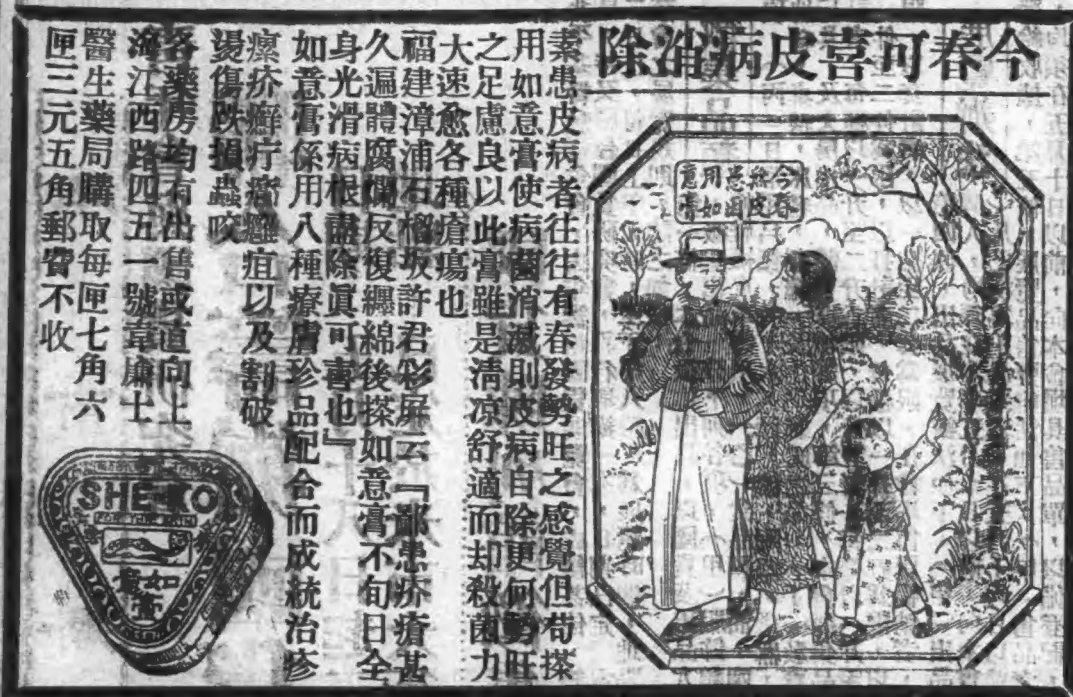 今春可喜皮病消除
今春
無皮
用如
意膏
素患皮病者往往有春發勢旺之感覺但苟搽
用如意膏使病菌消滅則皮病自除更何勢旺
之足慮良以此膏雖是清凉舒適而却殺菌力
大速愈各種瘡瘍也
福建漳浦石榴坂許君彩屏云「鄙患疥瘡甚
久遍體腐爛反復纒綿後搽如意膏不旬日全
身光滑病根盡除眞可喜也』
如意膏係用八種療膚珍品配合而成統治疹
瘰疥癬疔瘡癰疽以及割破
燙傷跌損蟲咬
各藥房均有出售或直向上
海江西路四五一號韋廉士
醫生藥局購取每匣七角六
匣三元五角郵費不收
SHE-KO
FOR THE SKIN
如意膏